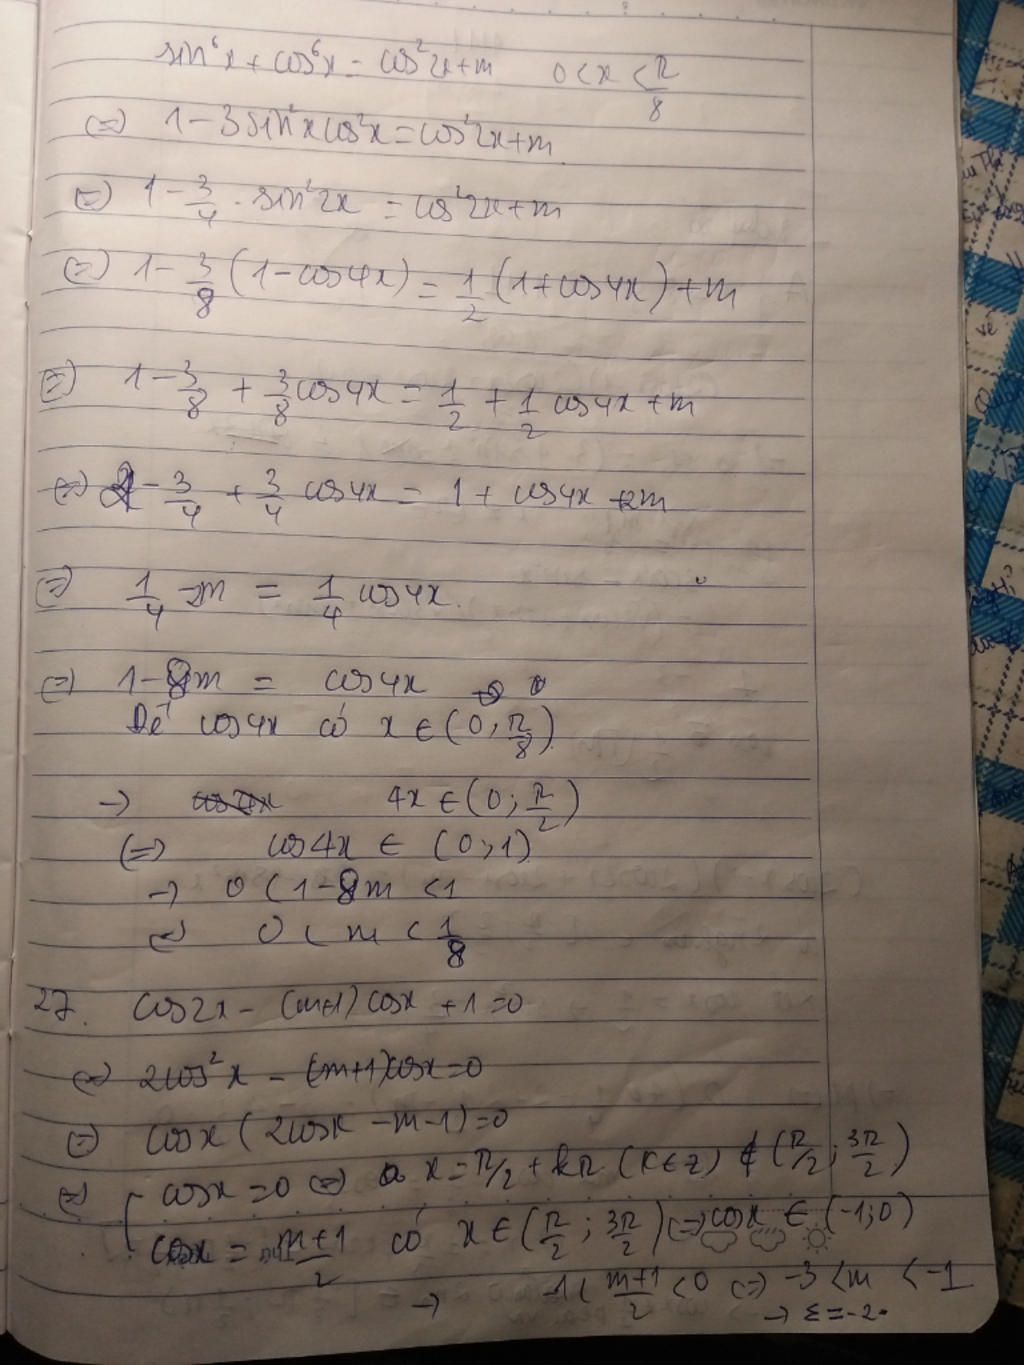 sin⁶x + cos⁶x = cos²2x + m 0 < x < π/8
⇔ 1 - 3sin²xcos²x = cos²2x + m
⇔ 1 - 3/4 . sin²2x = cos²2x + m
⇔ 1 - 3/8 (1 - cos4x) = 1/2 (1 + cos4x) + m
⇔ 1 - 3/8 + 3/8 cos4x = 1/2 + 1/2 cos4x + m
⇔ 2 - 3/4 + 3/4 cos4x = 1 + cos4x + 2m
⇔ 1/4 - 2m = 1/4 cos4x.
⇔ 1 - 8m = cos4x
Để cos4x có x ∈ (0; π/8)
→ 4x ∈ (0; π/2)
⇔ cos4x ∈ (0;1)
→ 0 < 1 - 8m < 1
⇔ 0 < m < 1/8
27. cos2x - (m+1)cosx + 1 = 0
⇔ 2cos²x - (m+1)cosx = 0
⇔ cosx (2cosx - m - 1) = 0
⇔ [ cosx = 0 ⇔ x = π/2 + kπ (k∈Z) ∉ (π/2; 3π/2)
cosx = m+1/2 có x ∈ (π/2; 3π/2) ⇔ cosx ∈ (-1;0)
→ -1 < m+1/2 < 0 ⇔ -3 < m < -1
→ Σ = -2.